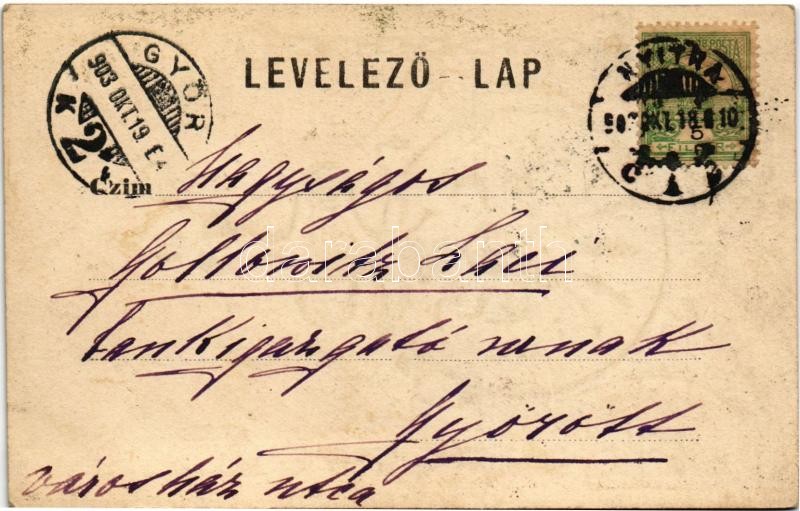 LEVELEZŐ - LAP
GYŐR
903 OKT. 19. E4
K 2
NYITRA
903 OKT. 18. 6 10
5
FILLÉR
Czim
Nagyságos
bankigazgató urnak
Győrött
városház utca
darabanth